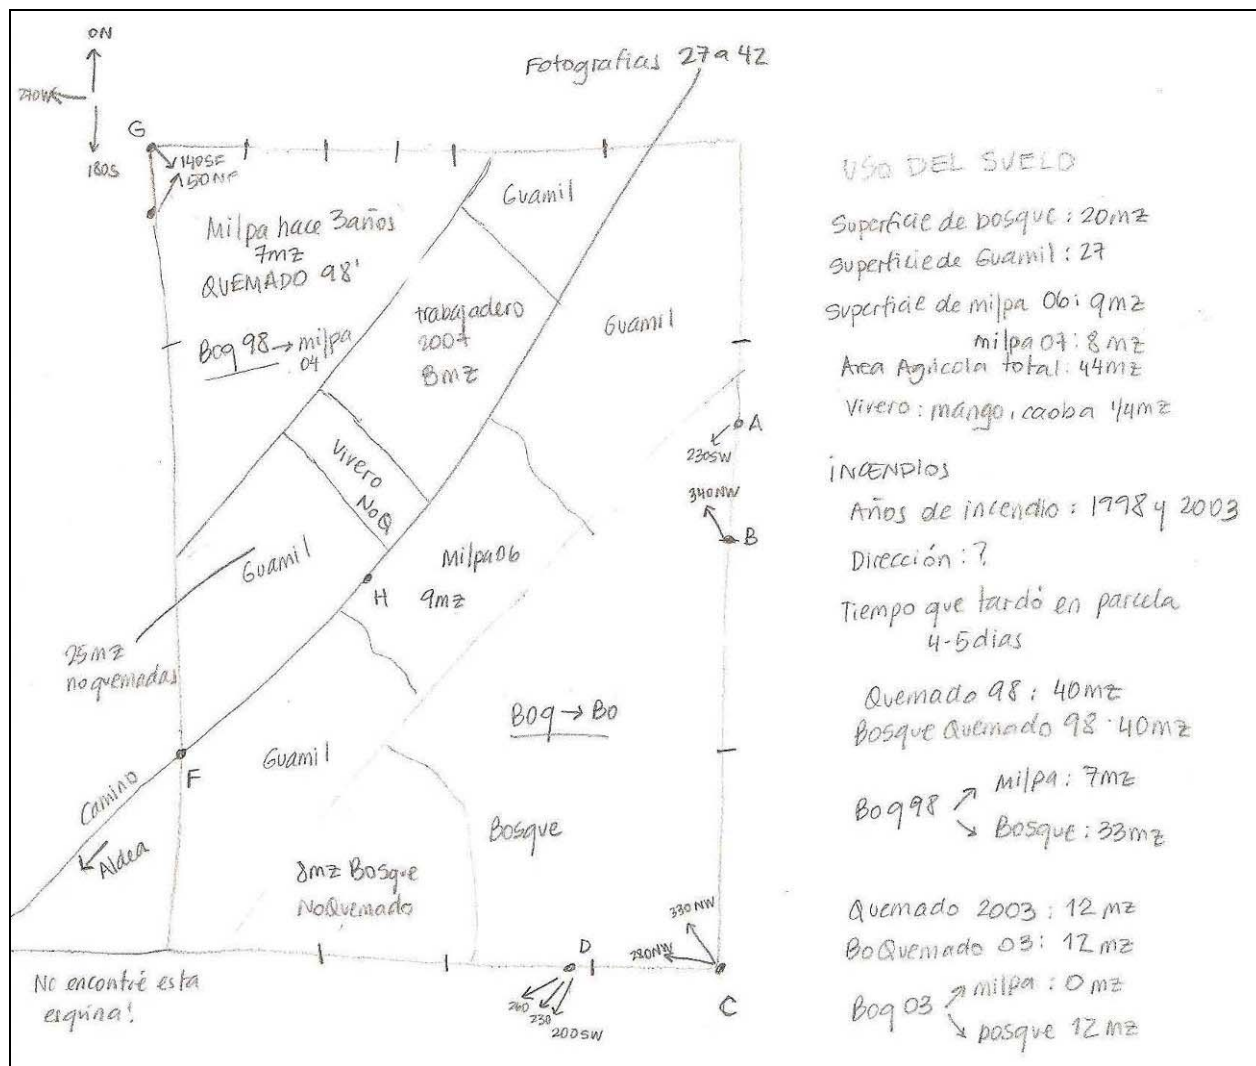 0N
270W
180S
Fotografias 27 a 42
G
140SE
50NE
Milpa hace 3 años
7mz
QUEMADO 98'
Boq 98 → milpa
04
Guamil
trabajadero
2007
8mz
Guamil
Vivero
NoQ
Guamil
H
Milpa 06
9mz
A
230SW
340NW
B
25mz
no quemadas
F
Camino
Aldea
Guamil
Boq → Bo
Bosque
8mz Bosque
No Quemado
330 NW
280NW
C
D
260
230
200SW
No encontré esta
esquina!
USO DEL SUELO
Superficie de bosque : 20mz
Superficie de Guamil : 27
Superficie de milpa 06 : 9mz
milpa 07 : 8mz
Area Agricola total : 44mz
Vivero : mango, caoba 1/4mz
INCENDIOS
Años de incendio : 1998 y 2003
Dirección : ?
Tiempo que tardó en parcela
4-5 dias
Quemado 98 : 40mz
Bosque Quemado 98 · 40mz
Boq 98 ↗ Milpa : 7mz
↘ Bosque : 33mz
Quemado 2003 : 12 mz
BoQuemado 03 : 12 mz
Boq 03 ↗ milpa : 0 mz
↘ bosque 12 mz